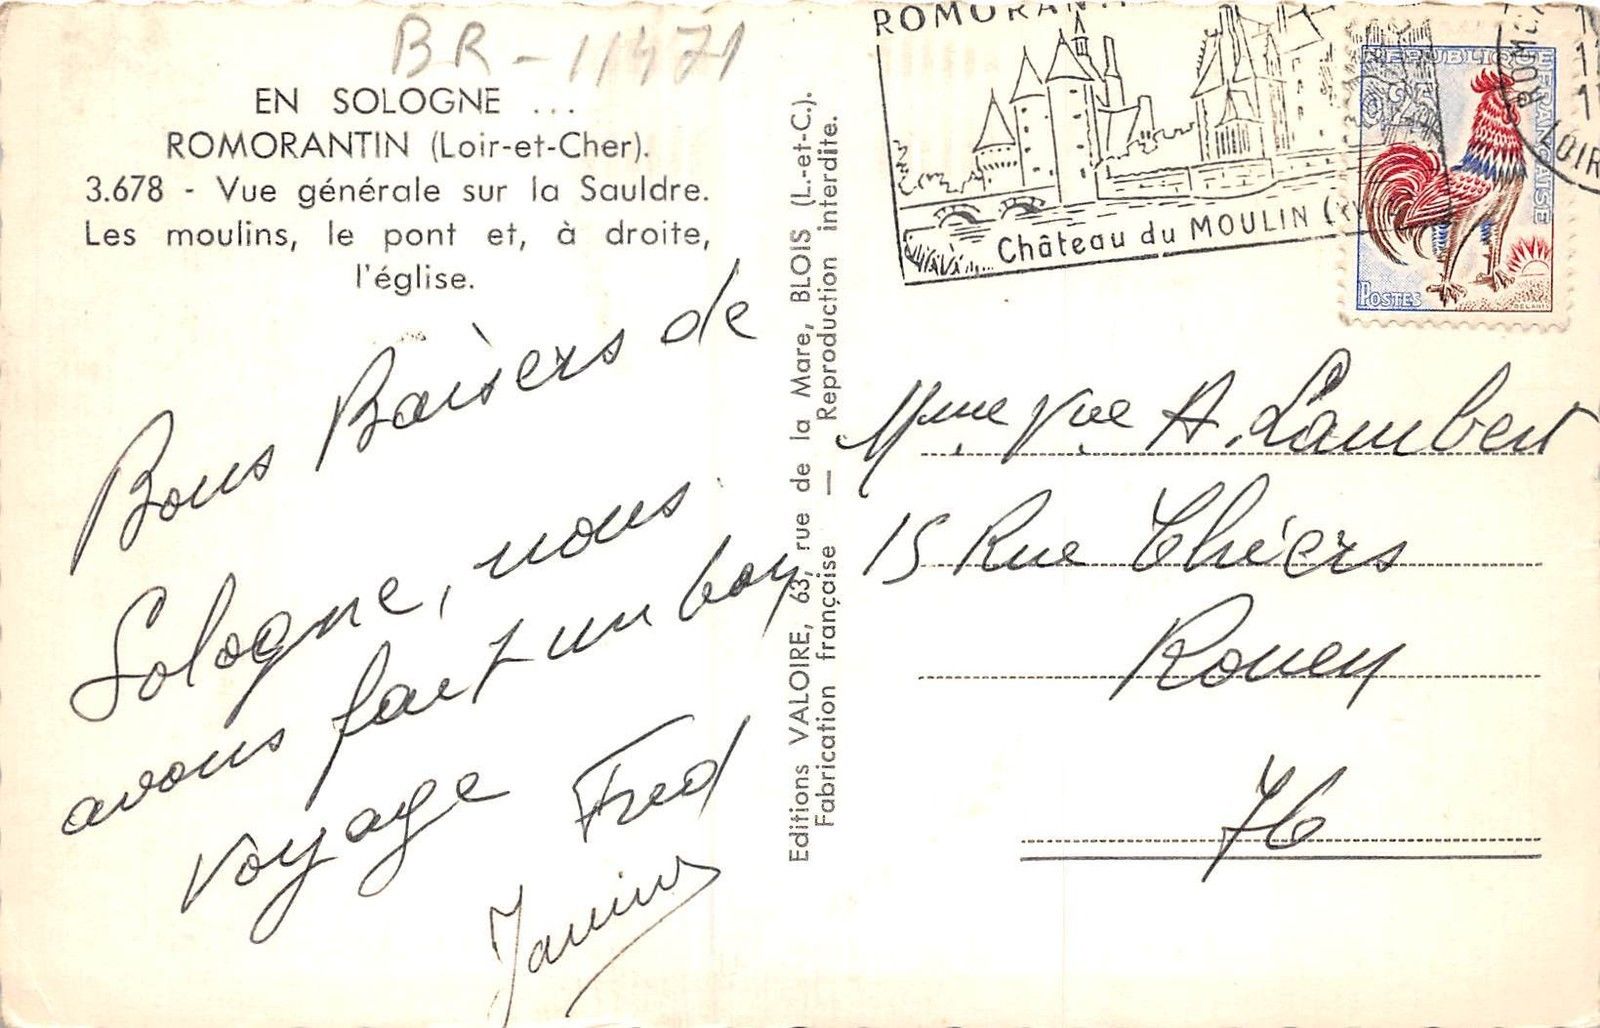 BR-11471
EN SOLOGNE ...
ROMORANTIN (Loir-et-Cher).
3.678 - Vue générale sur la Sauldre.
Les moulins, le pont et, à droite,
l'église.
Bons Baisers de
Sologne, nous
avons fait un bon
voyage Fred
Janine
Editions VALOIRE, 63, rue de la Mare, BLOIS (L.-et-C.).
Fabrication française — Reproduction interdite.
ROMORANTI
Château du MOULIN
REPUBLIQUE FRANÇAISE
0,25
POSTES
LOIR
Mme Vve A. Lambert
15 Rue Thiers
Rouen
76